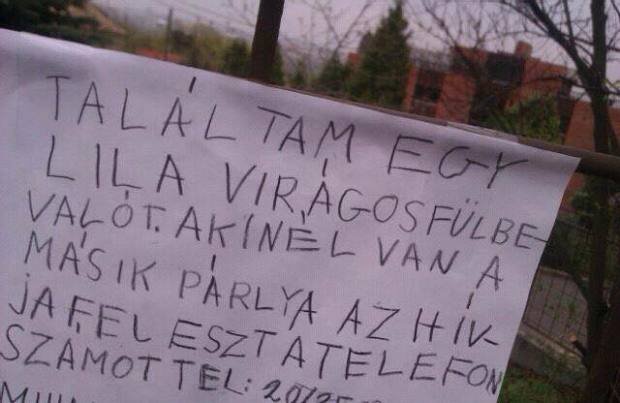 TALÁLTAM EGY
LILA VIRÁGOSFÜLBE-
VALÓT. AKINÉL VAN A
MÁSIK PÁRLYA AZ HÍV-
JA FEL ESZT A TELEFON
SZÁMOT TEL: 20/